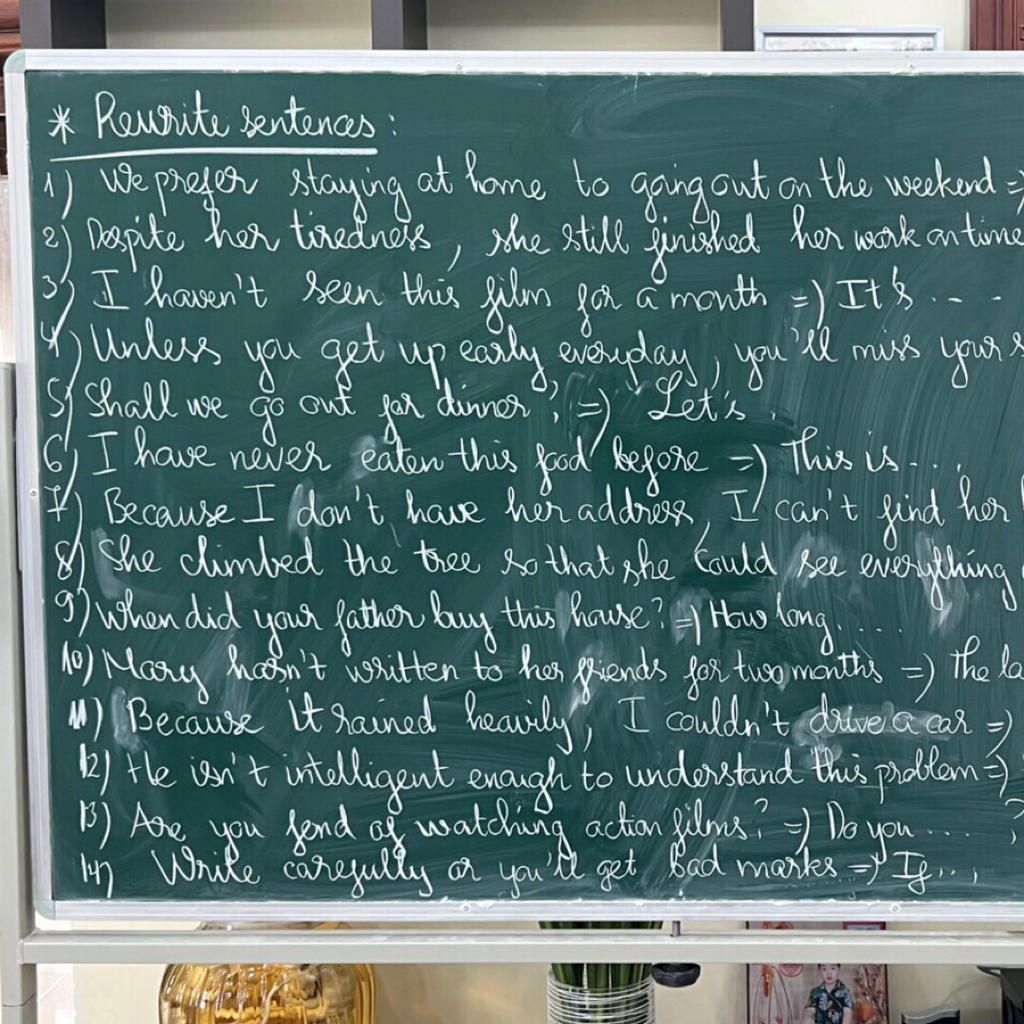 * Rewrite sentences:
1) We prefer staying at home to going out on the weekend =>
2) Despite her tiredness, she still finished her work on time
3) I haven't seen this film for a month => It's ....
4) Unless you get up early everyday, you'll miss your
5) Shall we go out for dinner? => Let's .
6) I have never eaten this food before => This is ....
7) Because I don't have her address, I can't find her
8) She climbed the tree so that she could see everything
9) When did your father buy this house? => How long ....
10) Mary hasn't written to her friends for two months => The la
11) Because it rained heavily, I couldn't drive a car =>
12) He isn't intelligent enough to understand this problem =>
13) Are you fond of watching action films? => Do you .... ?
14) Write carefully or you'll get bad marks => If ...